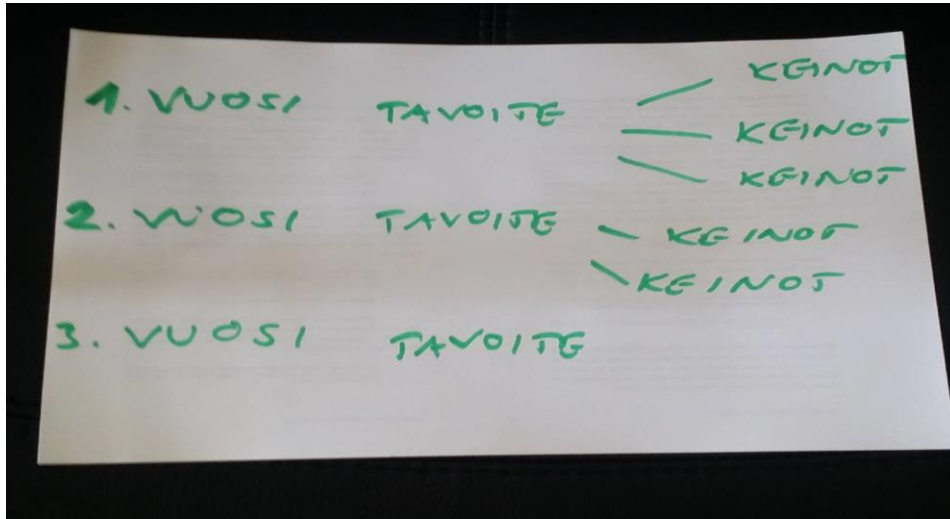 1. VUOSI TAVOITE KEINOT
KEINOT
KEINOT
2. VUOSI TAVOITE KEINOT
KEINOT
3. VUOSI TAVOITE